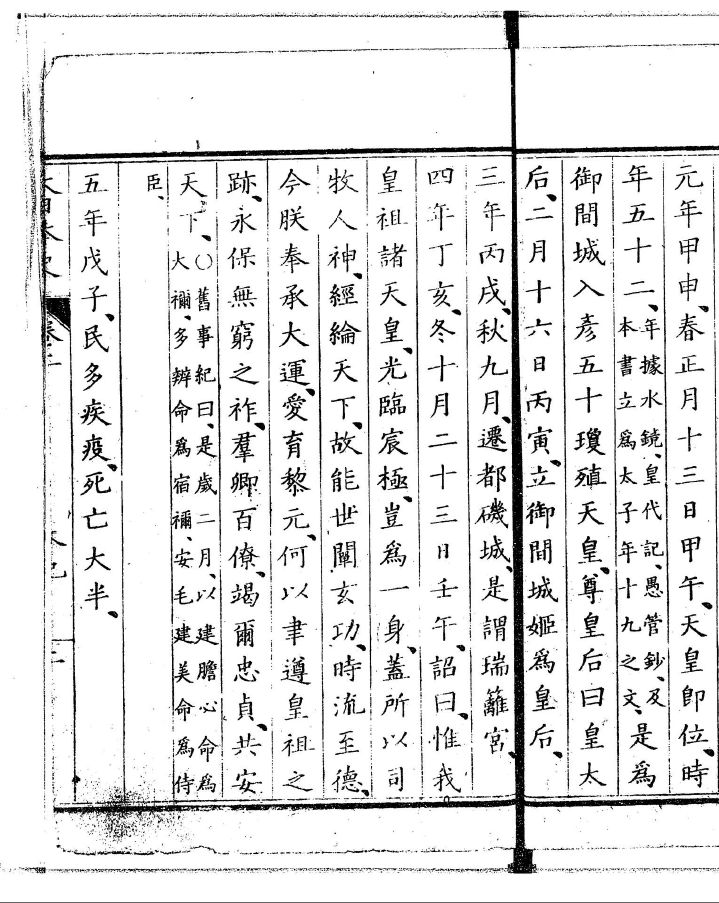 元年甲申、春正月十三日甲午、天皇卽位、時
年五十二、年據水鏡、皇代記、愚管鈔、及本書立爲太子年十九之文、是爲
御間城入彥五十瓊殖天皇、尊皇后曰皇太
后、二月十六日丙寅、立御間城姬爲皇后、
三年丙戌、秋九月、遷都磯城、是謂瑞籬宮、
四年丁亥、冬十月二十三日壬午、詔曰、惟我
皇祖諸天皇、光臨宸極、豈爲一身、蓋所以司
牧人神、經綸天下、故能世闡玄功、時流至德、
今朕奉承大運、愛育黎元、何以聿遵皇祖之
跡、永保無窮之祚、羣卿百僚、竭爾忠貞、共安
天下、〇舊事紀曰、是歲二月、以建膽心命爲大禰、多辨命爲宿禰、安毛建美命爲侍
臣、
五年戊子、民多疾疫、死亡大半、